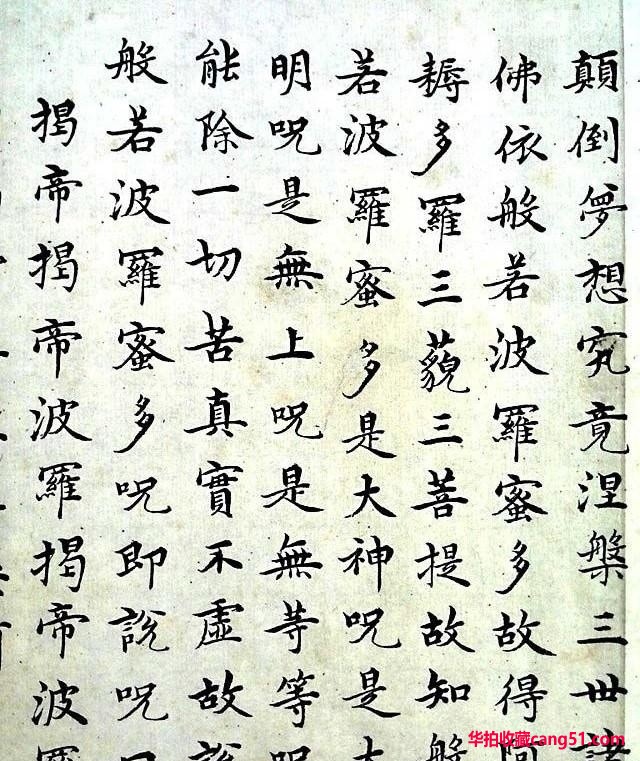 顛倒夢想究竟涅槃三世諸
佛依般若波羅蜜多故得阿
耨多羅三藐三菩提故知般
若波羅蜜多是大神呪是大
明呪是無上呪是無等等呪
能除一切苦真實不虛故說
般若波羅蜜多呪即說呪曰
揭帝揭帝波羅揭帝波羅
华拍收藏cang51.com